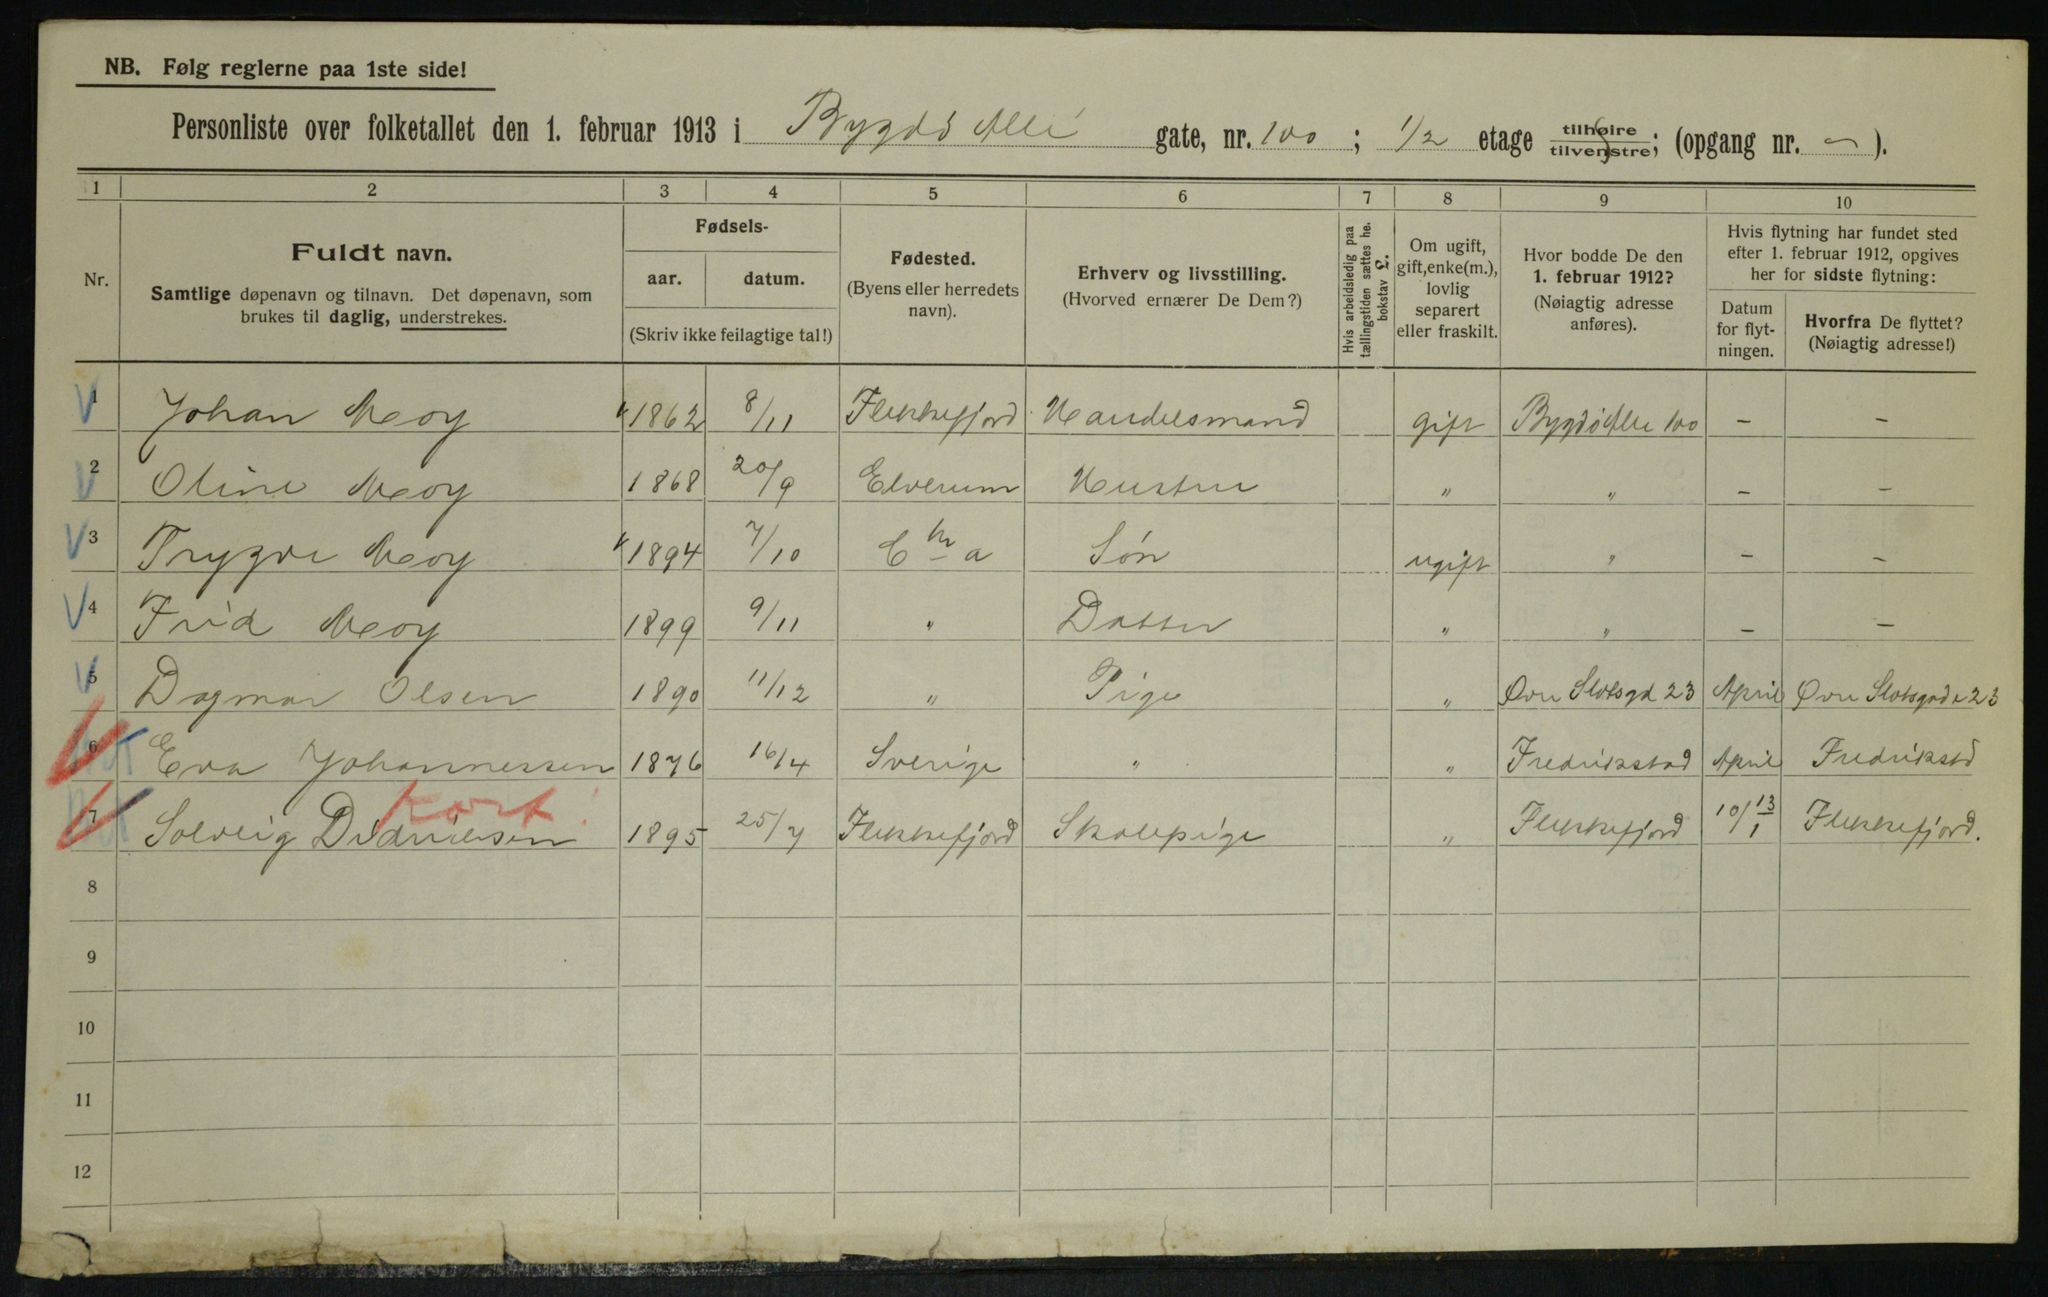 NB. Følg reglerne paa 1ste side!
Personliste over folketallet den 1. februar 1913 i Bygdö Allé gate, nr. 100 ; 1/2 etage tilhøire tilvenstre; (opgang nr. — ).
1 2 3 4 5 6 7 8 9 10
Nr.
Fuldt navn.
Samtlige døpenavn og tilnavn. Det døpenavn, som
brukes til daglig, understrekes.
Fødsels-
aar. datum.
(Skriv ikke feilagtige tal!)
Fødested.
(Byens eller herredets
navn).
Erhverv og livsstilling.
(Hvorved ernærer De Dem?)
Hvis arbeidsledig paa
tællingstiden sættes he.
bokstav £.
Om ugift,
gift, enke(m.),
lovlig
separert
eller fraskilt.
Hvor bodde De den
1. februar 1912?
(Nøiagtig adresse
anføres).
Hvis flytning har fundet sted
efter 1. februar 1912, opgives
her for sidste flytning:
Datum
for flyt-
ningen.
Hvorfra De flyttet?
(Nøiagtig adresse!)
1 Johan Moy 1862 8/11 Flekkefjord Handelsmand gift Bygdö Alle 100 — —
2 Oline Moy 1868 20/9 Elverum Hustru " " — —
3 Trygve Moy 1894 7/10 Chr a Søn ugift " — —
4 Frid Moy 1899 9/11 " Datter " " — —
5 Dagmar Olsen 1890 11/12 " Pige " Øvre Slotsgd 23 April Øvre Slotsgade 23
6 Eva Johannessen 1876 16/4 Sverige " " Fredrikstad April Fredrikstd
Kort!
7 Solveig Didriksen 1895 25/7 Flekkefjord Skolepige " Flekkefjord 10/1 13 Flekkefjord.
8
9
10
11
12